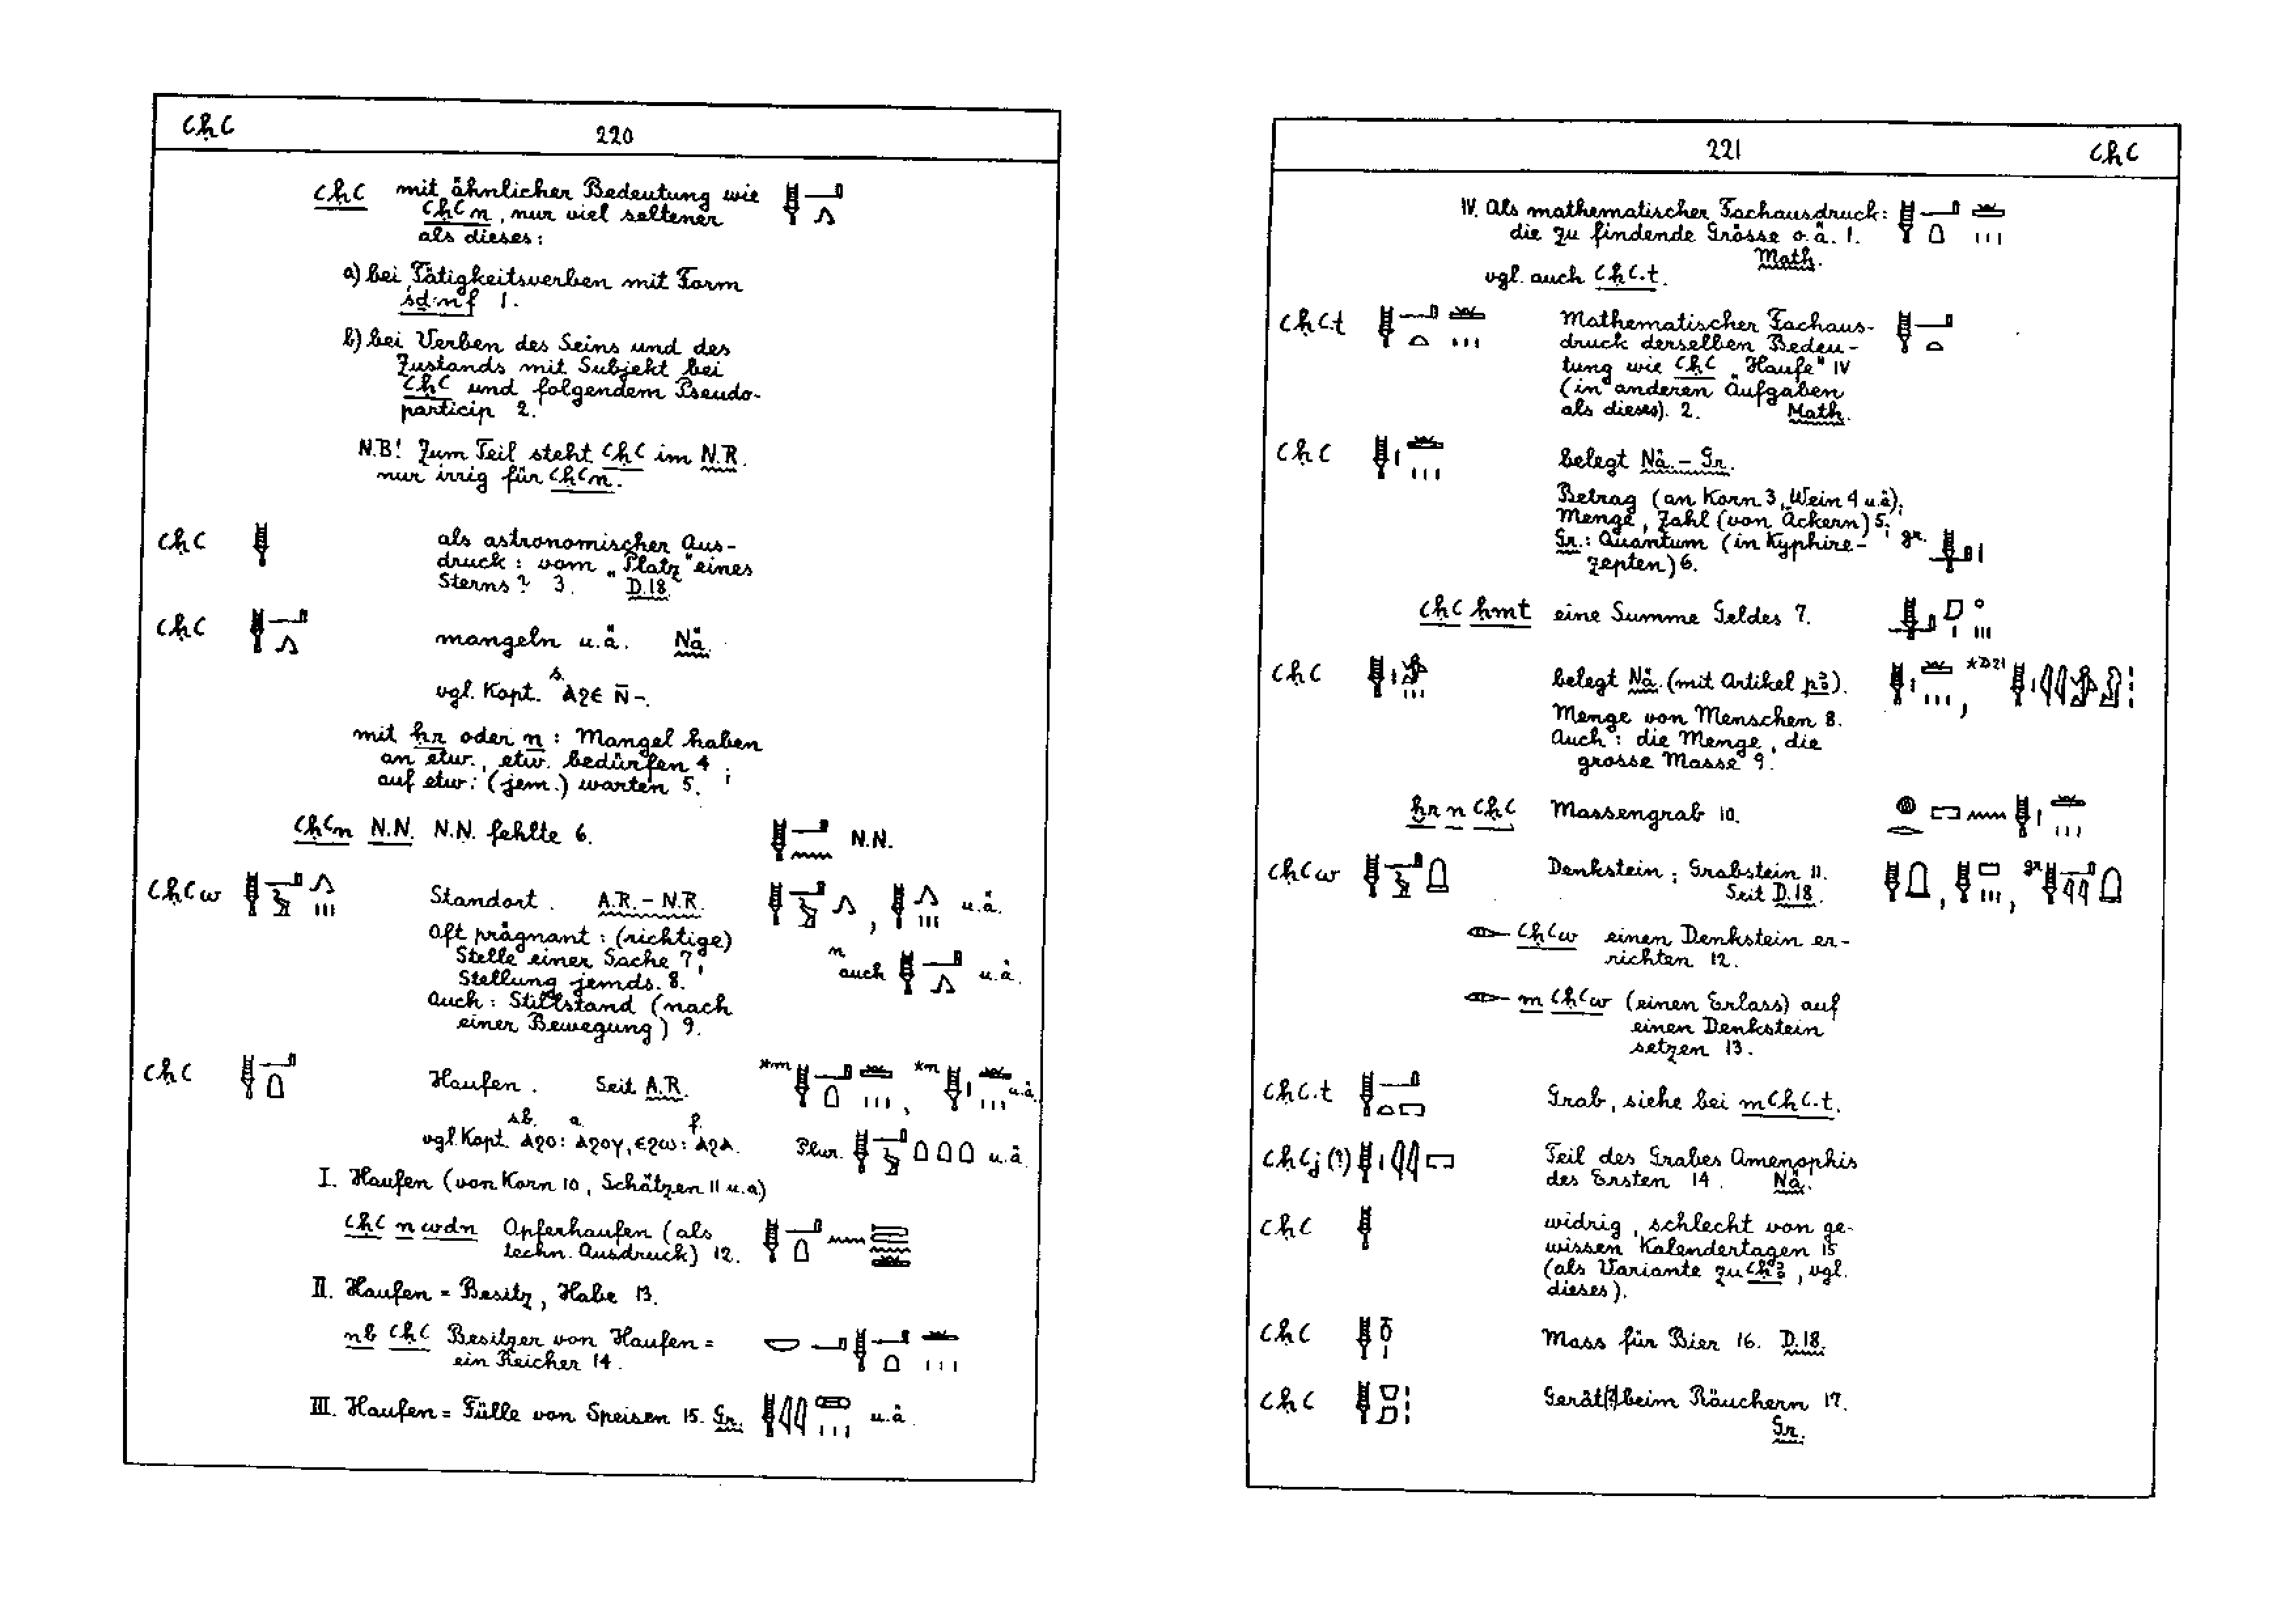 ꜥḥꜥ
220
ꜥḥꜥ mit ähnlicher Bedeutung wie
ꜥḥꜥn, nur viel seltener
als dieses:
a) bei Tätigkeitsverben mit Form
śḏ·n·f 1.
b) bei Verben des Seins und des
Zustands mit Subjekt bei
ꜥḥꜥ und folgendem Pseudo-
particip 2.
N.B! Zum Teil steht ꜥḥꜥ im N.R.
nur irrig für ꜥḥꜥn.
ꜥḥꜥ als astronomischer Aus-
druck: vom „Platz“ eines
Sterns? 3. D.18.
ꜥḥꜥ mangeln u.ä. Nä.
s.
vgl. Kopt. ⲁϩⲉ ⲛ̄-.
mit ḥr oder n: Mangel haben
an etw., etw. bedürfen 4;
auf etw: (jem.) warten 5.
ꜥḥꜥn N.N. N.N. fehlte 6. N.N.
ꜥḥꜥw Standort. A.R. - N.R. , u.ä.
Oft prägnant: (richtige)
Stelle einer Sache 7,
Stellung jemds. 8.
n
auch u.ä.
Auch: Stillstand (nach
einer Bewegung) 9.
ꜥḥꜥ Haufen. Seit A.R. *m , *n u.ä.
sb. a. f.
vgl. Kopt. ⲁϩⲟ: ⲁϩⲟⲩ, ⲉϩⲱ: ⲁϩⲁ. Plur. u.ä.
I. Haufen (von Korn 10, Schätzen 11 u.a)
ꜥḥꜥ n wdn Opferhaufen (als
techn. Ausdruck) 12.
II. Haufen = Besitz, Habe 13.
nb ꜥḥꜥ Besitzer von Haufen =
ein Reicher 14.
III. Haufen = Fülle von Speisen 15. Gr. u.ä.
221
ꜥḥꜥ
IV. Als mathematischer Fachausdruck:
die zu findende Grösse o.ä. 1.
Math.
vgl. auch ꜥḥꜥ.t.
ꜥḥꜥ.t Mathematischer Fachaus-
druck derselben Bedeu-
tung wie ꜥḥꜥ „Haufe“ IV
(in anderen Aufgaben
als dieses). 2. Math.
ꜥḥꜥ belegt Nä. - Gr.
Betrag (an Korn 3, Wein 4 u.ä);
Menge, Zahl (von Äckern) 5;
Gr.: Quantum (in Kyphire-
zepten) 6.
gr.
ꜥḥꜥ ḥmt eine Summe Geldes 7.
ꜥḥꜥ belegt Nä. (mit Artikel pꜣ). , *D21
Menge von Menschen 8.
Auch: die Menge, die
grosse Masse 9.
ẖr n ꜥḥꜥ Massengrab 10.
ꜥḥꜥw Denkstein; Grabstein 11. , , gr
Seit D.18.
ꜥḥꜥw einen Denkstein er-
richten 12.
m ꜥḥꜥw (einen Erlass) auf
einen Denkstein
setzen 13.
ꜥḥꜥ.t Grab, siehe bei mꜥḥꜥ.t.
ꜥḥꜥj (?) Teil des Grabes Amenophis
des Ersten 14. Nä.
ꜥḥꜥ widrig, schlecht von ge-
wissen Kalendertagen 15
(als Variante zu ꜥḥꜣ, vgl.
dieses).
ꜥḥꜥ Mass für Bier 16. D.18.
ꜥḥꜥ Gerät(?) beim Räuchern 17.
Gr.